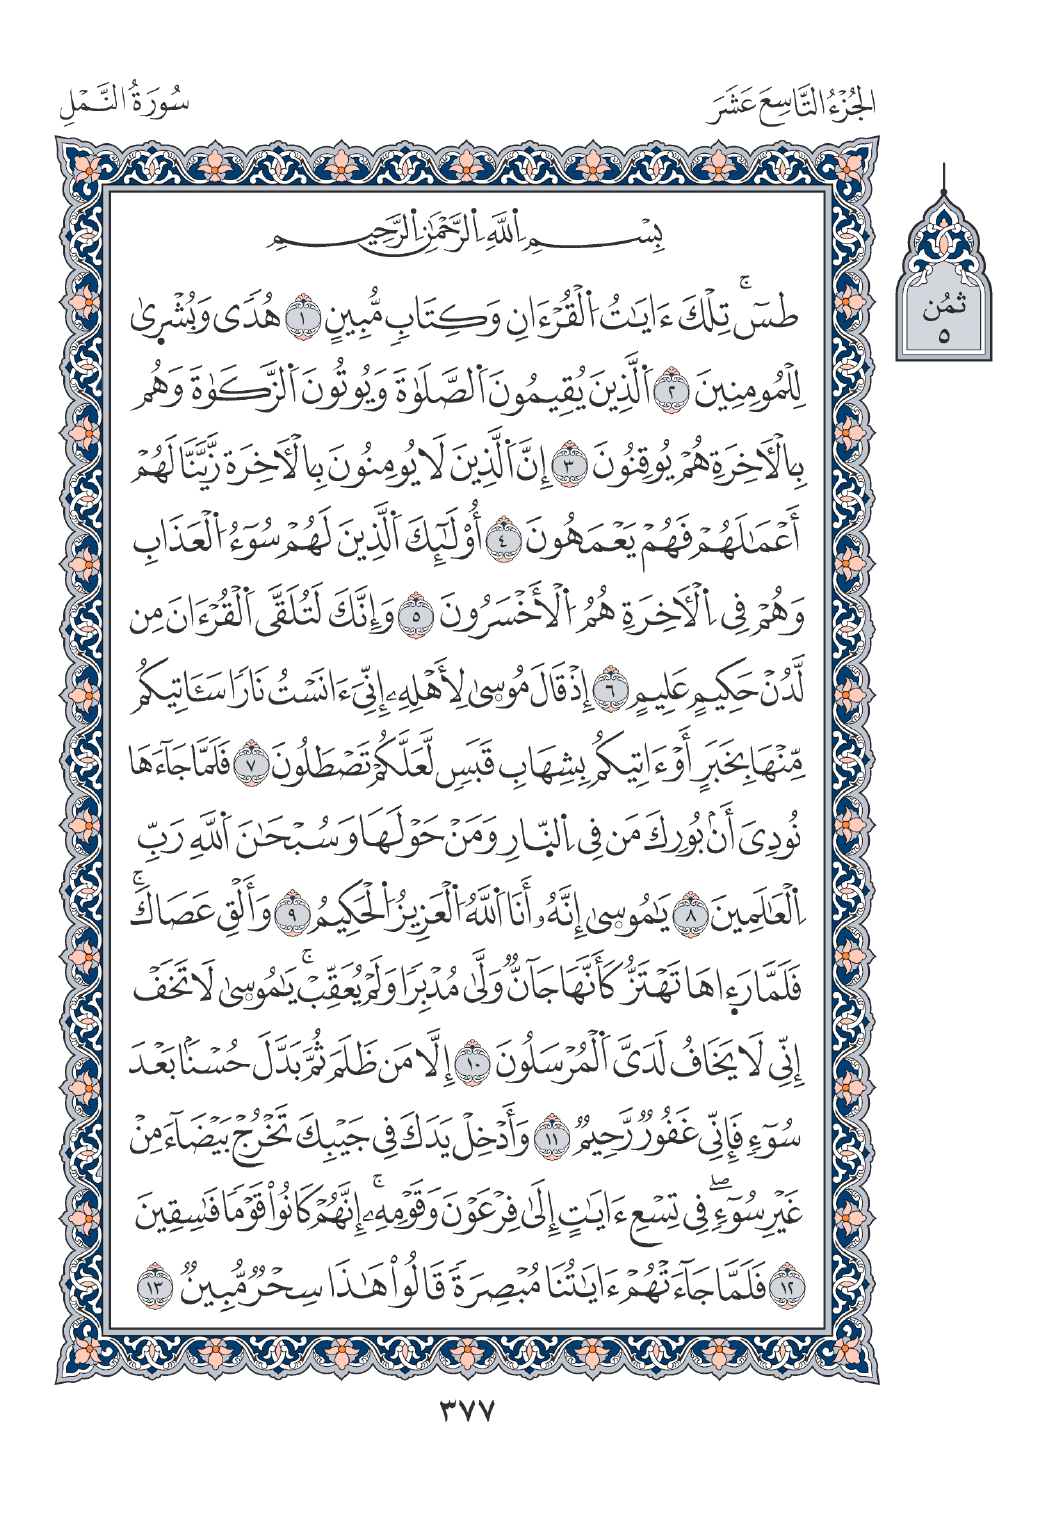 سُورَةُ النَّمْلِ
الجُزْءُ التَّاسِعَ عَشَرَ
ثمُن
٥
بِسْمِ اِ۬للَّهِ اِ۬لرَّحْمَٰنِ اِ۬لرَّحِيمِ
طسٓۚ تِلْكَ ءَايَٰتُ اُ۬لْقُرْءَانِ وَكِتَابٖ مُّبِينٍ ١ هُدٗى وَبُشْر۪ىٰ
لِلْمُومِنِينَ ٢ اَ۬لَّذِينَ يُقِيمُونَ اَ۬لصَّلَوٰةَ وَيُوتُونَ اَ۬لزَّكَوٰةَ وَهُم
بِالْأٓخِرَةِ هُمْ يُوقِنُونَ ٣ إِنَّ اَ۬لَّذِينَ لَا يُومِنُونَ بِالْأٓخِرَة زَّيَّنَّا لَهُمْ
أَعْمَٰلَهُمْ فَهُمْ يَعْمَهُونَ ٤ أُوْلَٰٓئِكَ اَ۬لَّذِينَ لَهُمْ سُوٓءُ اُ۬لْعَذَابِ
وَهُمْ فِي اِ۬لْأٓخِرَةِ هُمُ اُ۬لْأَخْسَرُونَ ٥ وَإِنَّكَ لَتُلَقَّى اَ۬لْقُرْءَانَ مِن
لَّدُنْ حَكِيمٍ عَلِيمٍ ٦ إِذْ قَالَ مُوس۪ىٰ لِأَهْلِهِۦ إِنِّيَ ءَانَسْتُ نَارٗا سَـَٔاتِيكُم
مِّنْهَا بِخَبَرٍ أَوْ ءَاتِيكُم بِشِهَابِ قَبَسٖ لَّعَلَّكُمْ تَصْطَلُونَ ٧ فَلَمَّا جَآءَهَا
نُودِيَ أَنۢ بُورِكَ مَن فِي اِ۬لنّ۪ارِ وَمَنْ حَوْلَهَا وَسُبْحَٰنَ اَ۬للَّهِ رَبِّ
اِ۬لْعَٰلَمِينَ ٨ يَٰمُوس۪ىٰ إِنَّهُۥ أَنَا اَ۬للَّهُ اُ۬لْعَزِيزُ اُ۬لْحَكِيمُ ٩ وَأَلْقِ عَصَاكَۚ
فَلَمَّا ر۪ء۪اهَا تَهْتَزُّ كَأَنَّهَا جَآنّٞ وَلَّىٰ مُدْبِرٗا وَلَمْ يُعَقِّبْۚ يَٰمُوس۪ىٰ لَا تَخَفْ
إِنِّي لَا يَخَافُ لَدَيَّ اَ۬لْمُرْسَلُونَ ١٠ إِلَّا مَن ظَلَمَ ثُمَّ بَدَّلَ حُسْنَۢا بَعْدَ
سُوٓءٖ فَإِنِّي غَفُورٞ رَّحِيمٞ ١١ وَأَدْخِلْ يَدَكَ فِي جَيْبِكَ تَخْرُجْ بَيْضَآءَ مِنْ
غَيْرِ سُوٓءٖۖ فِي تِسْعِ ءَايَٰتٍ إِلَىٰ فِرْعَوْنَ وَقَوْمِهِۦۚ إِنَّهُمْ كَانُواْ قَوْمٗا فَٰسِقِينَ
١٢ فَلَمَّا جَآءَتْهُمْ ءَايَٰتُنَا مُبْصِرَةٗ قَالُواْ هَٰذَا سِحْرٞ مُّبِينٞ ١٣
٣٧٧